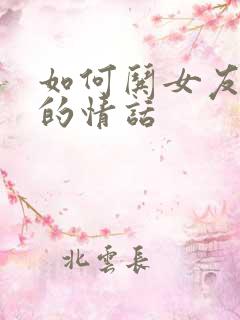 如何鬨女友
的情話
北雲長